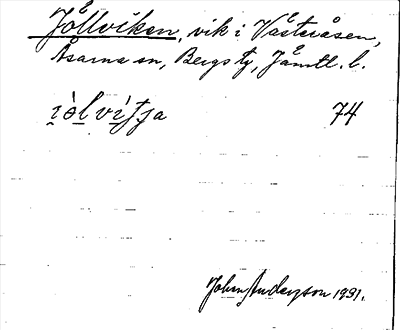 Jöllviken, vik i Västeråsen,
Åsarna sn, Bergs tg, Jämtl. l.
74
John Anderson 1931.